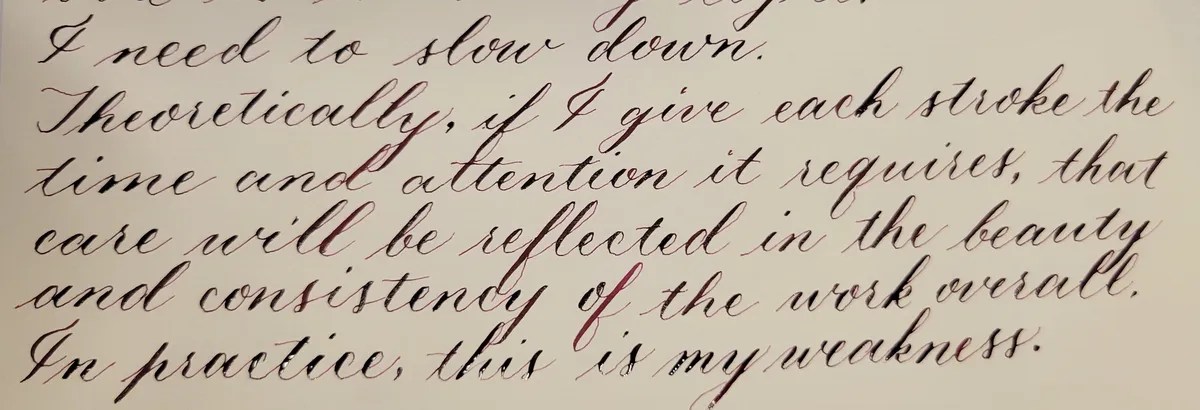 I need to slow down.
Theoretically, if I give each stroke the
time and attention it requires, that
care will be reflected in the beauty
and consistency of the work overall.
In practice, this is my weakness.